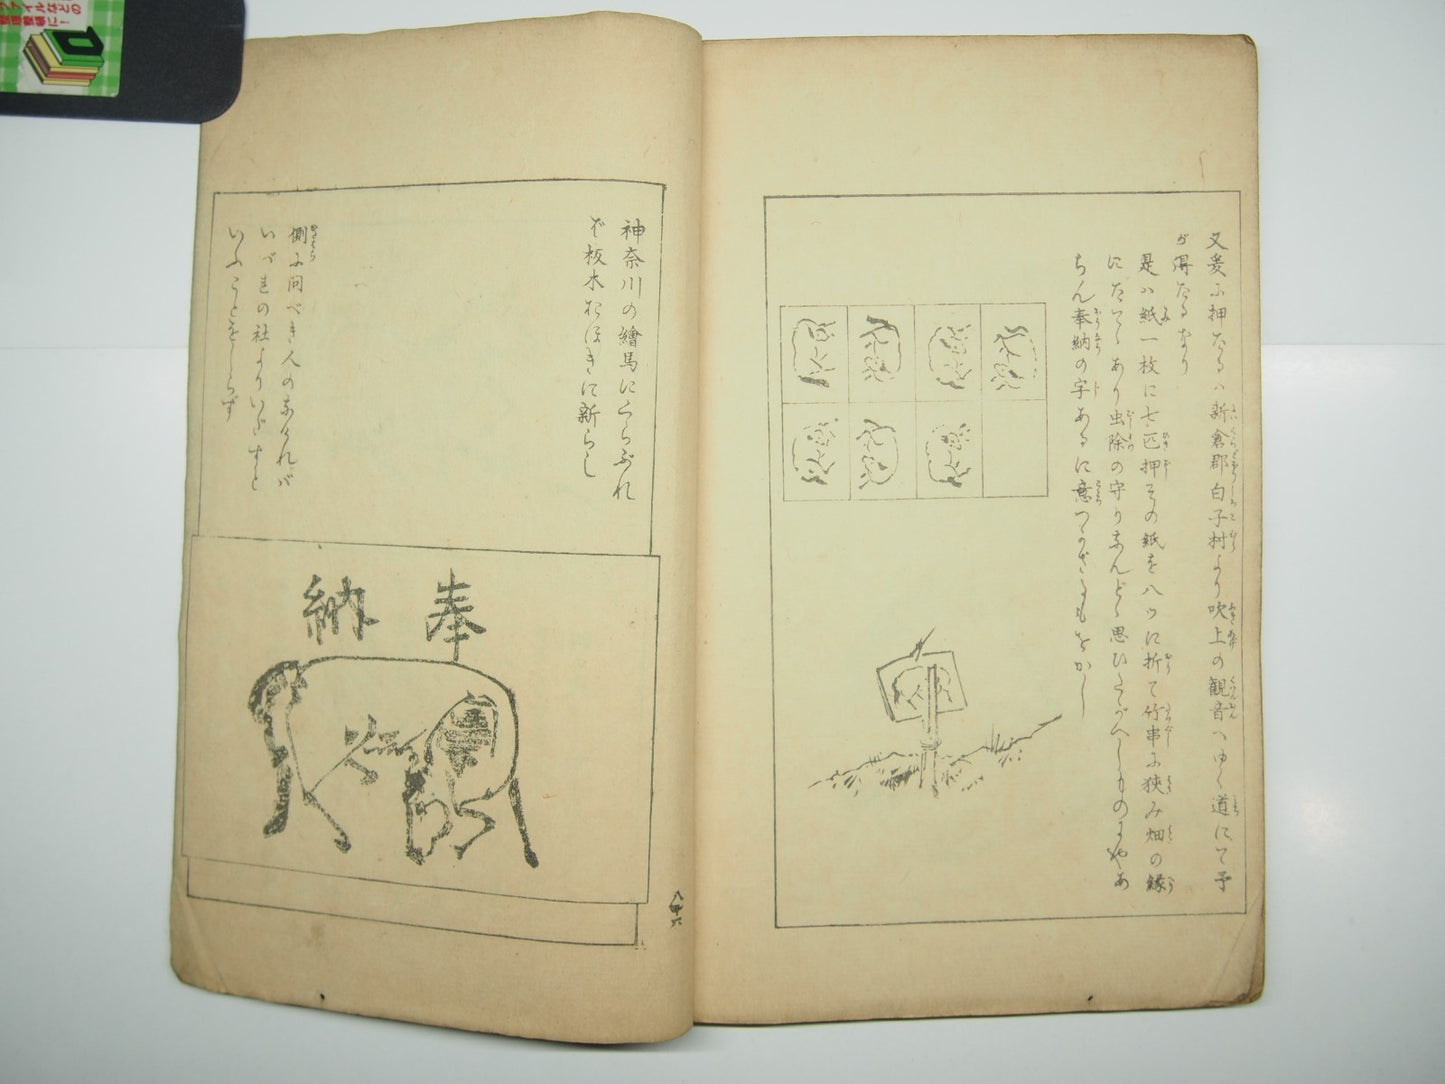 又爰ニ押たるハ新倉郡白子村より吹上の観音へゆく道にて予
が得たるなり
是ハ紙一枚に七匹押その紙を八ツに折て竹串に挟み畑の縁
にたてゝあり虫除の守りなんどゝ思ひたがへしものにやあ
ちん奉納の字あるに意つかざるもをかし
神奈川の繪馬にくらぶれ
ば板木おほきに新らし
側に問べき人のなければ
いづれの社よりいだすと
いふことをしらず
奉納